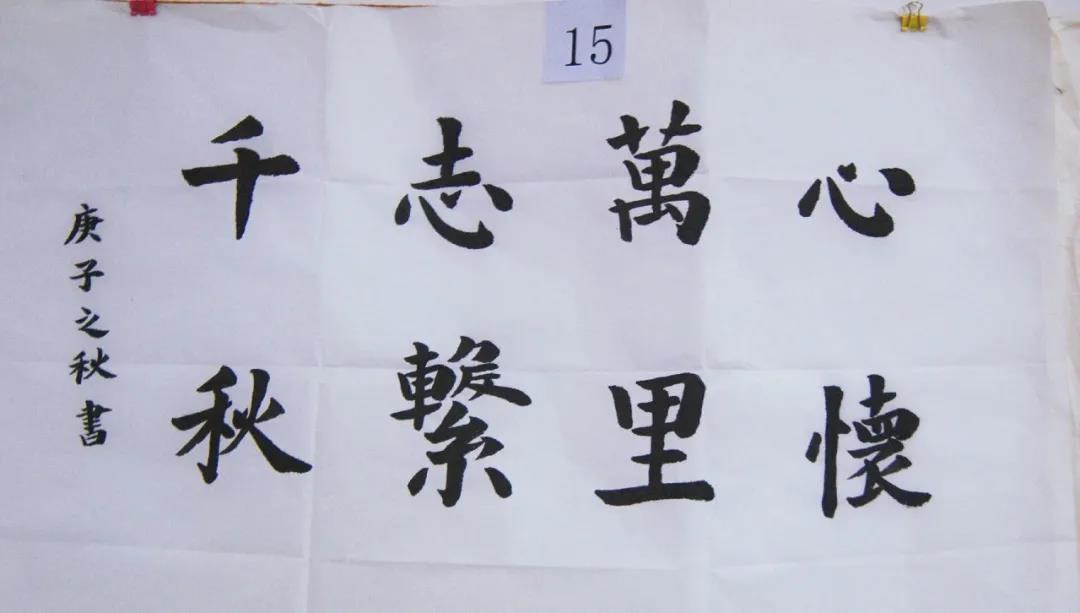 15
心懷
萬里
志繫
千秋
庚子之秋書